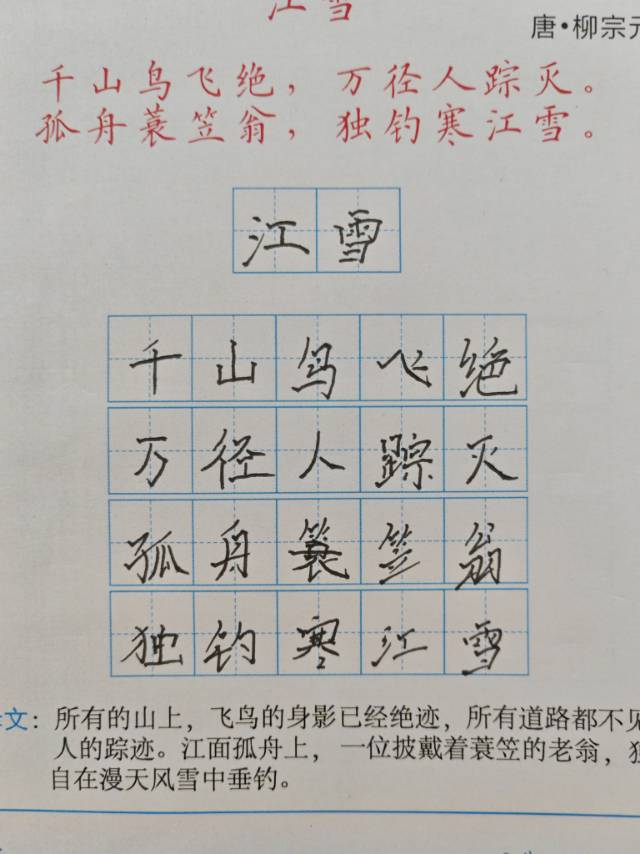 江雪
唐·柳宗元
千山鸟飞绝，万径人踪灭。
孤舟蓑笠翁，独钓寒江雪。
江雪
千山鸟飞绝
万径人踪灭
孤舟蓑笠翁
独钓寒江雪
文：所有的山上，飞鸟的身影已经绝迹，所有道路都不见
人的踪迹。江面孤舟上，一位披戴着蓑笠的老翁，独
自在漫天风雪中垂钓。